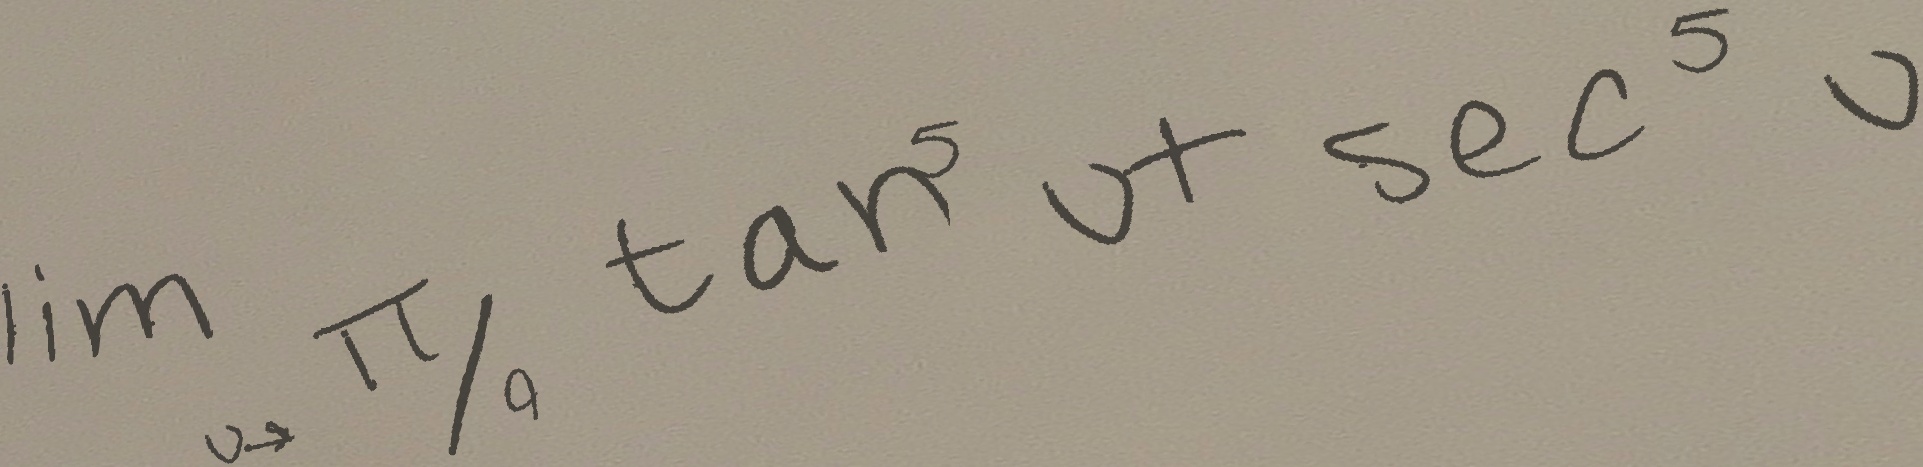 lim υ→ π/9 tan⁵ υ + sec⁵ υ